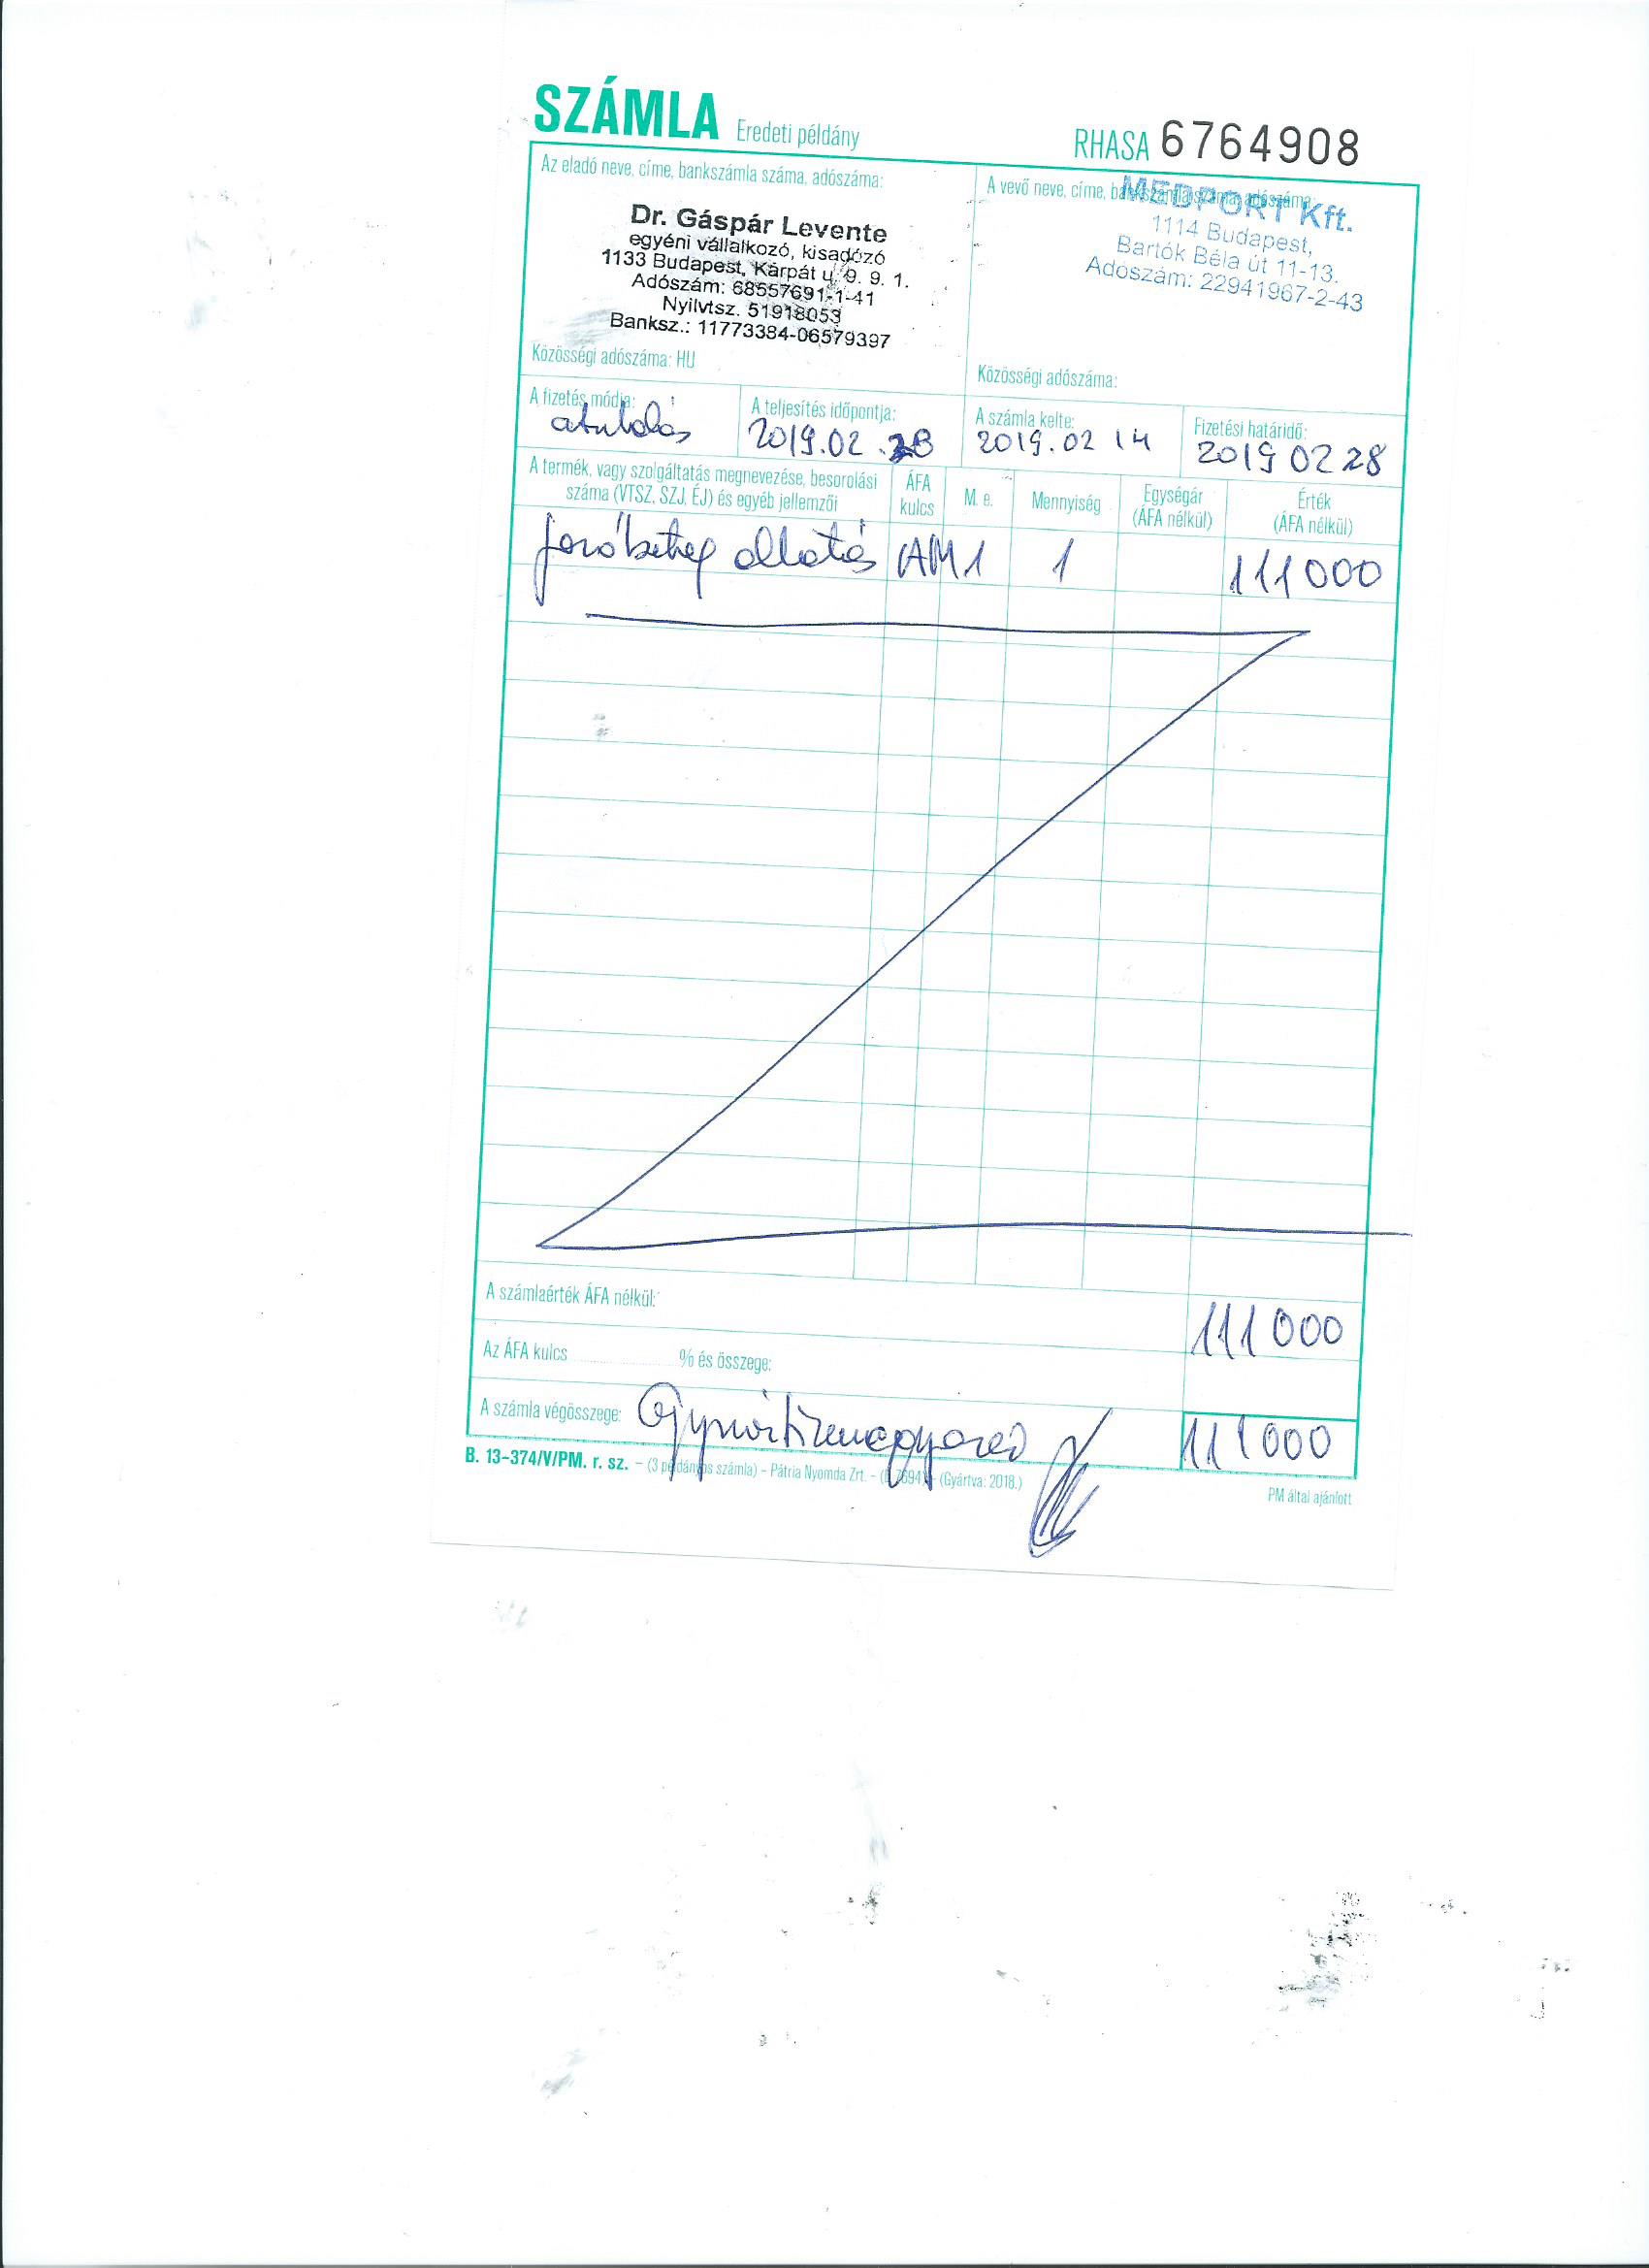 SZÁMLA Eredeti példány RHASA 6764908
Az eladó neve, címe, bankszámla száma, adószáma:
Dr. Gáspár Levente
egyéni vállalkozó, kisadózó
1133 Budapest, Kárpát u. 9. 9. 1.
Adószám: 68557691-1-41
Nyilvtsz. 51918053
Banksz.: 11773384-06579397
Közösségi adószáma: HU
A vevő neve, címe, bankszámla száma, adószáma:
MEDPORT Kft.
1114 Budapest,
Bartók Béla út 11-13.
Adószám: 22941967-2-43
Közösségi adószáma:
A fizetés módja:
átutalás
A teljesítés időpontja:
2019.02.28
A számla kelte:
2019.02 14
Fizetési határidő:
2019 02 28
A termék, vagy szolgáltatás megnevezése, besorolási
száma (VTSZ, SZJ, ÉJ) és egyéb jellemzői
ÁFA
kulcs
M. e.
Mennyiség
Egységár
(ÁFA nélkül)
Érték
(ÁFA nélkül)
járóbeteg ellátás AM 1 1 111000
A számlaérték ÁFA nélkül: 111000
Az ÁFA kulcs % és összege:
A számla végösszege: 111000
B. 13-374/V/PM. r. sz. – (3 példányos számla) – Pátria Nyomda Zrt. – (Gyártva: 2018.)
PM által ajánlott